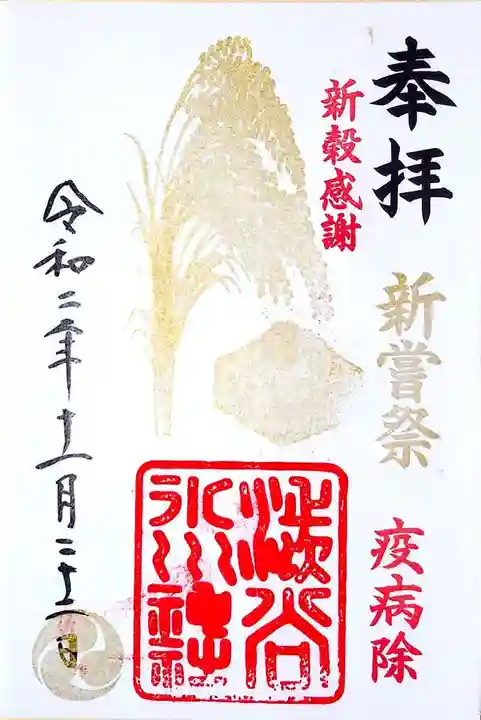 奉拝
新嘗祭
疫病除
新穀感謝
渋谷
氷川社
令和二年十一月二十三日